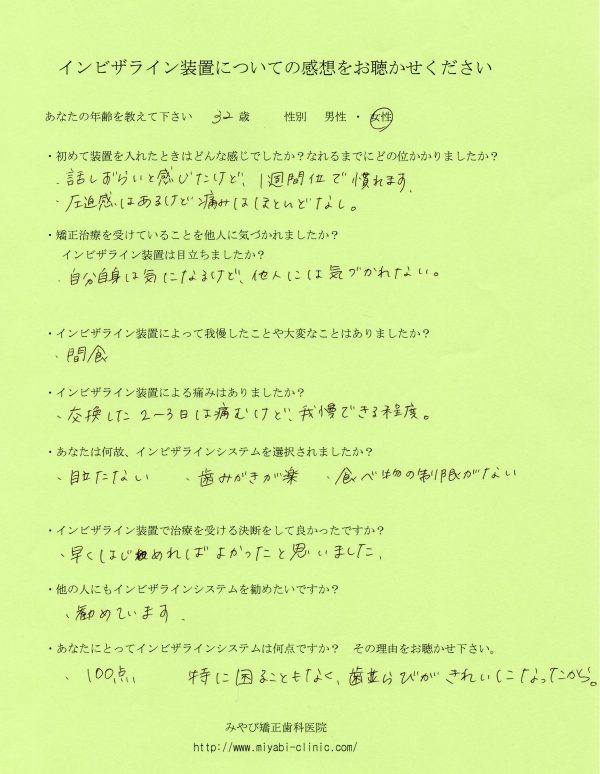 インビザライン装置についての感想をお聴かせください
あなたの年齢を教えて下さい 32 歳 性別 男性 ・ 女性
・初めて装置を入れたときはどんな感じでしたか？なれるまでにどの位かかりましたか？
、話しずらいと感じたけど、1週間位で慣れます。
、圧迫感はあるけど痛みはほとんどなし。
・矯正治療を受けていることを他人に気づかれましたか？
インビザライン装置は目立ちましたか？
、自分自身は気になるけど、他人には気づかれない。
・インビザライン装置によって我慢したことや大変なことはありましたか？
、間食
・インビザライン装置による痛みはありましたか？
、交換した2〜3日は痛むけど、我慢できる程度。
・あなたは何故、インビザラインシステムを選択されましたか？
、目立たない 、歯みがきが楽 、食べ物の制限がない
・インビザライン装置で治療を受ける決断をして良かったですか？
、早くはじめればよかったと思いました。
・他の人にもインビザラインシステムを勧めたいですか？
、勧めています。
・あなたにとってインビザラインシステムは何点ですか？ その理由をお聴かせ下さい。
、100点 特に困ることもなく、歯並らびがきれいになったから。
みやび矯正歯科医院
http://www.miyabi-clinic.com/